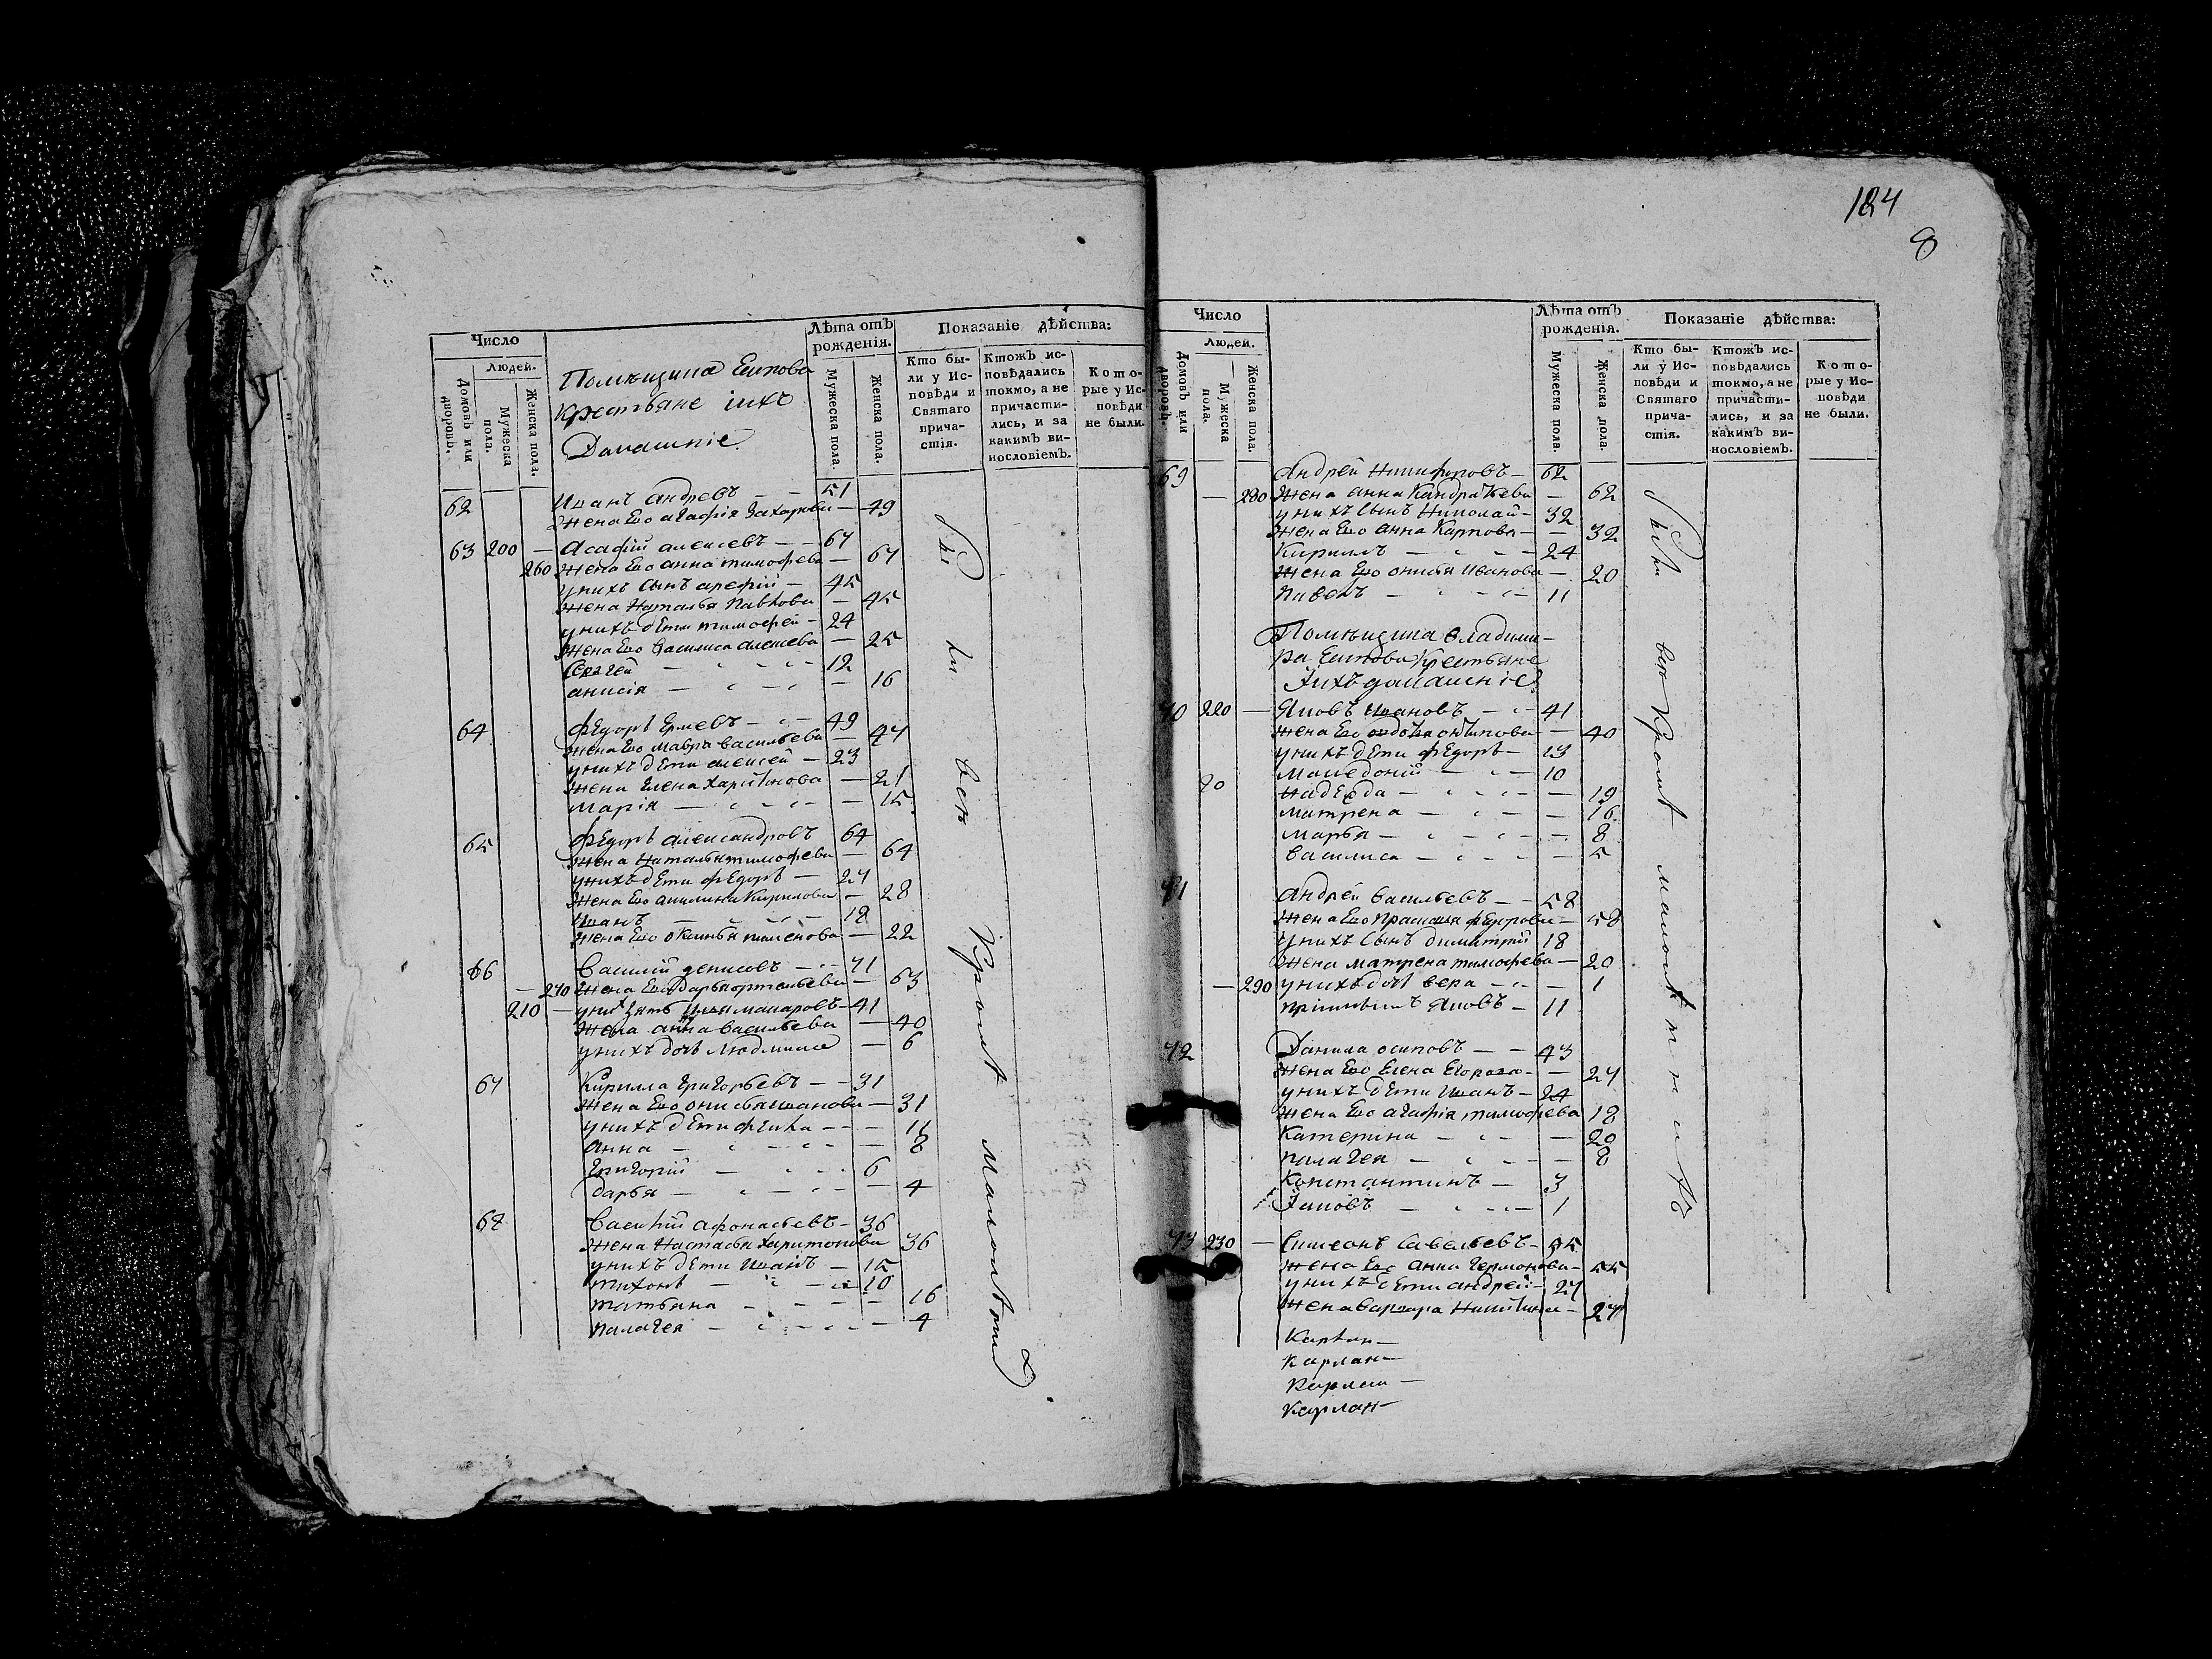 184
8
Число
Людей.
Домовъ или дворовъ.
Мужеска пола.
Женска пола.
Помѣщика Еипова
крестьяне ихъ
Домашніе
Лѣта отъ рожденія.
Мужеска пола.
Женска пола.
Показаніе дѣйства:
Кто были у Исповѣди и Святаго причастія.
Ктожъ исповѣдались токмо, а не причастились, и за какимъ винословіемъ.
Которые у Исповѣди не были.
62 Иванъ андревъ — 51
Жена Ево агафія Захарова — 49
63 200 — Асафій алексевъ — 67
260 Жена Ево анна тимофева — 67
у нихъ сынъ арефій — 45
жена Наталья Павлова — 45
у нихъ дети тимофей — 24
Жена Ево Василиса алексева — 25
Сергей — 12
анисія — 16
64 Федоръ Ермевъ — 49
Жена Ево мавра васильева — 47
у нихъ дети алексей — 23
Жена Елена Харитонова — 21
Марія — 15
65 Федоръ александровъ 64
Жена Наталья тимофева — 64
у нихъ дети федоръ — 27
Жена Ево акилина Кирилова — 28
Иванъ — 18
Жена Ево оксинья пименова — 22
66 Василій денисовъ — 71
— 270 Жена Ево Дарья — 63
210 — у них зять макаровъ — 41
Жена анна Васильева — 40
у нихъ дочь Людмила — 6
67 Кирилла Григорьевъ — 31
Жена Ево онисья иванова — 31
у нихъ дети фекла — 11
Анна — 8
Григорій — 6
дарья — 4
68 Василій афонасьевъ — 36
Жена Настасья Харитонова 36
у нихъ дети Иванъ — 15
тихонъ — 10
татьяна — 16
палагея — 4
вси Кроме малолѣтних
Число
Людей.
Домовъ или дворовъ.
Мужеска пола.
Женска пола.
Лѣта отъ рожденія.
Мужеска пола.
Женска пола.
Показаніе дѣйства:
Кто были у Исповѣди и Святаго причастія.
Ктожъ исповѣдались токмо, а не причастились, и за какимъ винословіемъ.
Которые у Исповѣди не были.
69 Андрей Никифоровъ — 62
— 280 Жена анна Кандратьева — 62
у нихъ сынъ Николай — 32
Жена Ево анна Карпова — 32
Кириллъ — 24
Жена Ево онисья Иванова — 20
Павелъ — 11
Помѣщика Владими-
ра Еипова Крестьяне
Ихъ домашніе
70 220 — Яковъ Ивановъ — 41
Жена Ево — 40
у нихъ дети федоръ — 13
Македоній — 10
Надежда — 19
матрена — 16
марья — 8
василиса — 5
71 Андрей васильевъ — 58
Жена Ево Прасковья федорова — 58
у нихъ сынъ димитрій 18
Жена матрена тимофева — 20
— 290 у нихъ дочь вера — 1
Яковъ — 11
72 Данила осиповъ — 43
Жена Ево Елена Егорова — 27
у нихъ дети Иванъ — 24
Жена Ево агафія тимофева 18
Катерина — 20
палагея — 8
Константинъ — 3
Іаковъ — 1
73 230 — Симеонъ Савельевъ — 55
Жена Ево Анна — 55
у нихъ дети андрей — 27
Жена варвара Никитина — 27
вси Кромѣ малолѣтнихъ
Карлан—
Карлан—
Карлан—
Карлан—